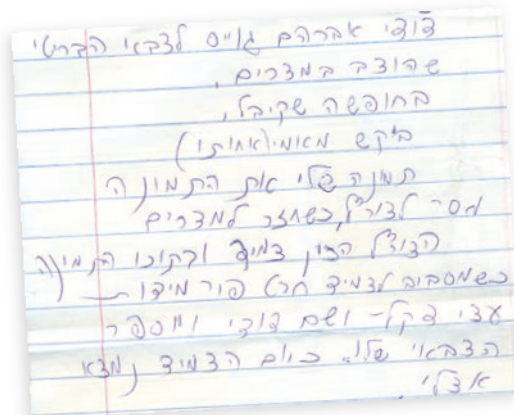 דודי אברהם גוייס לצבאי הבריטי
שהוצב במצרים,
בחופשה שקיבל,
ביקש מאמי (אחותו)
תמונה שלי את התמונה
מסר לצורף, כשחזר למצרים
הצורף הכין צמיד ובתוכו התמונה
כשמסביב לצמיד חרט פירמידות
עצי דקל - ושם דודי ומספר
הצבאי שלו. כיום הצמיד נמצא
אצלי.